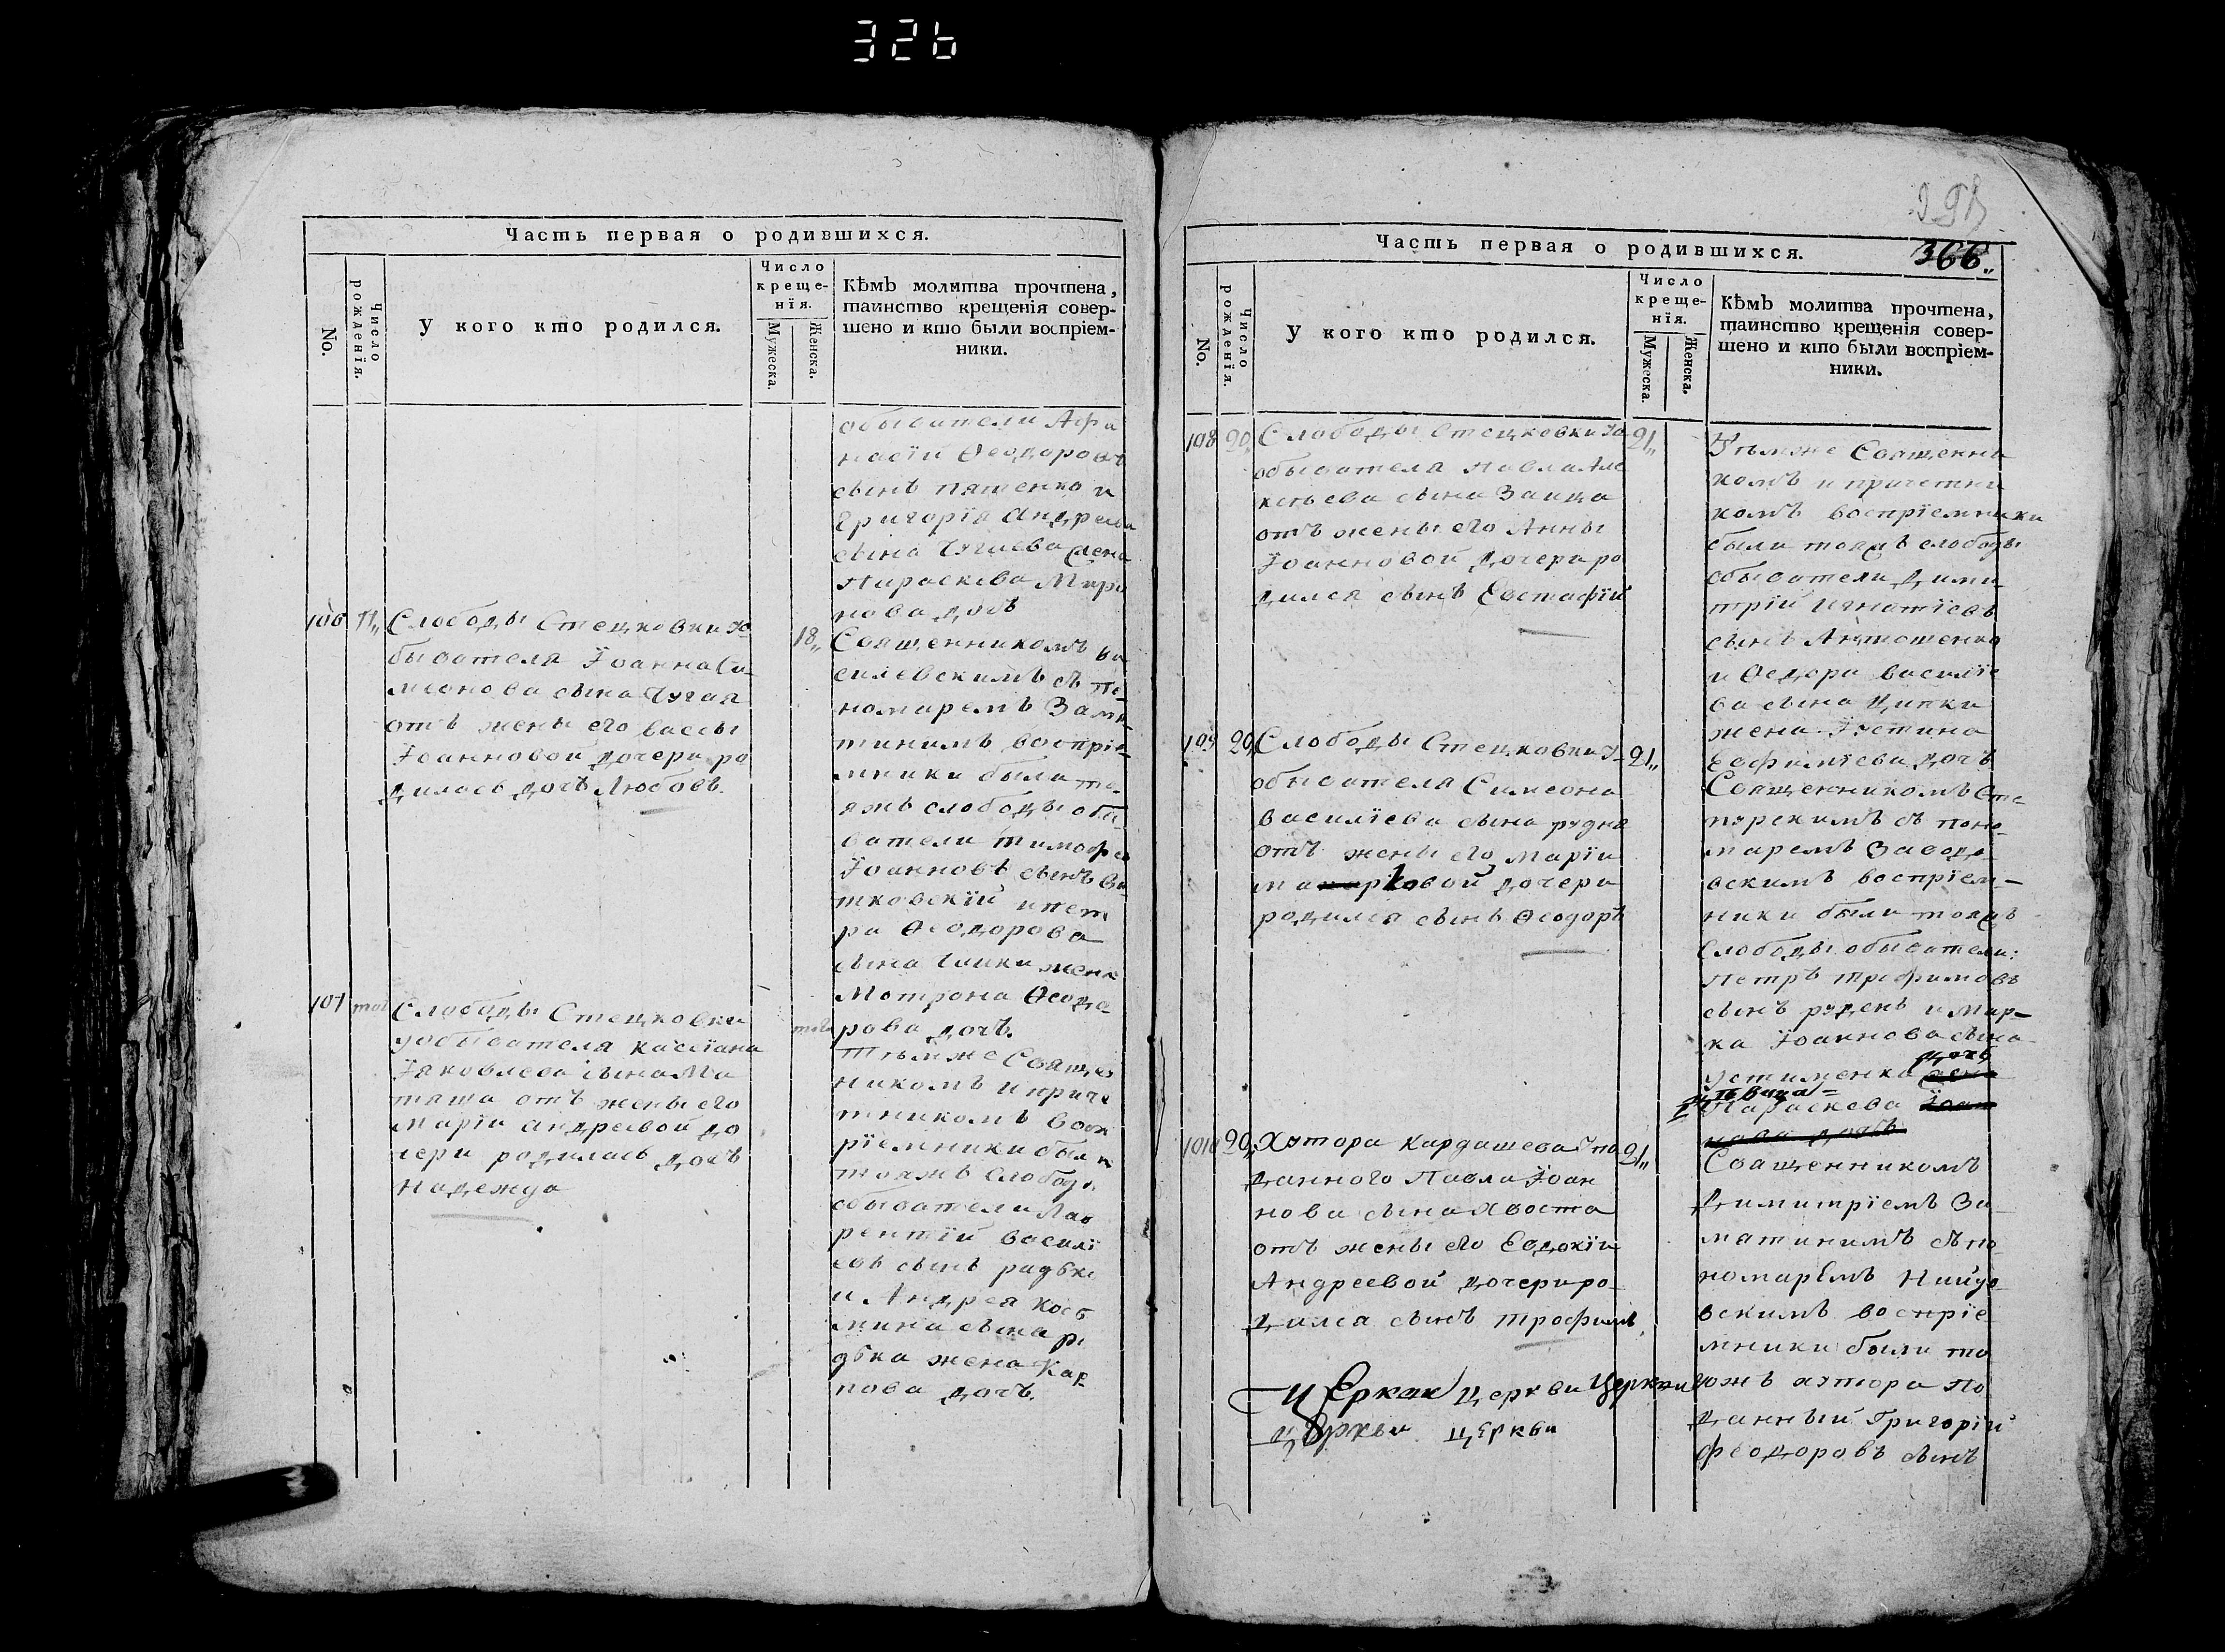 326
Часть первая о родившихся.
No.
Число рожденїя.
У кого кто родился.
Число креще-
нїя.
Мужеска.
Женска.
Кѣмъ молитва прочтена,
таинство крещенія совер-
шено и кто были воспріем-
ники.
обыватели Афа
насїи Ѳеодоровъ
сынъ пященко и
Григорїя Андреева
сына Чугаева жена
Параскева Миро
нова дочь
106 17,, Слободы Стецковки у о
бывателя Їоанна Си-
меонова сына Чугая
отъ жены его вассы
Їоанновой дочери ро
дилась дочь Любовь.
18,,
Священникомъ ва
силевскимъ съ по-
номаремъ Зама-
тинимъ воспріе-
мники были то-
яжъ слободы обы-
ватели тимофей
Їоанновъ сынъ
тковскїй и пет
ра Ѳеодорова
сына жена
Мотрона Ѳеодо-
рова дочь.
107 той Слободы Стецковки
у обывателя кассїана
Їяковлева сына Ма
тяша отъ жены его
марїи андреевой до
чери родилась дочь
надежда
тогож
тѣмже Священ
никомъ и приче
тникомъ восп
рїемники были
тояжъ Слободы
обыватели Лав
рентїй василї
евъ сынъ радько
и Андрея косм
мина сына ра
дька жена Кар-
пова дочь.
295
366,,
Часть первая о родившихся.
No.
Число рожденїя.
У кого кто родился.
Число креще-
нїя.
Мужеска.
Женска.
Кѣмъ молитва прочтена,
таинство крещенія совер-
шено и кто были воспріем-
ники.
108 20,, Слободы Стецковки у о
обывателя Павла Але
ксѣева сына Заица
отъ жены его Анны
Їоанновой дочери ро
дился сынъ Евстафїй
21,,
Тѣмже Священни
комъ и причетни
комъ воспрїемники
были тояжъ слободы
обыватели Дими-
трїй Игнатїевъ
сынъ Антошенко
и Ѳедора василїе
ва сына Ципки
жена Їустина
Ефимїева дочь
109 20, Слободы Стецковки у-
обывателя Симеона
Василїева сына рудня
отъ жены его марїи
марковой дочери
родился сынъ Ѳеодоръ
21,,
Священникомъ Сте
пурскимъ съ поно-
маремъ Завод-
овскимъ воспрїем-
ники были тояжъ
Слободы обыватели:
Петръ трофимовъ
сынъ рудень и мар-
ка Їоаннова сына
устименка дочь
дѣвица=
Параскева Їоан
нова дочь
1010 20,, Хутора Кардашева у по
данного Павла Їоан
нова сына Хвоста
отъ жены его Евдокїи
Андреевой дочери ро-
дился сынъ трофимъ
21,,
Священникомъ
Димитрїемъ За-
матинимъ съ по-
номарЕмъ Найдо
вскимъ воспрїе
мники были то
гожъ хутора по
данный Григорїй
феодоровъ сынъ
церкви церкви
церкви церкви